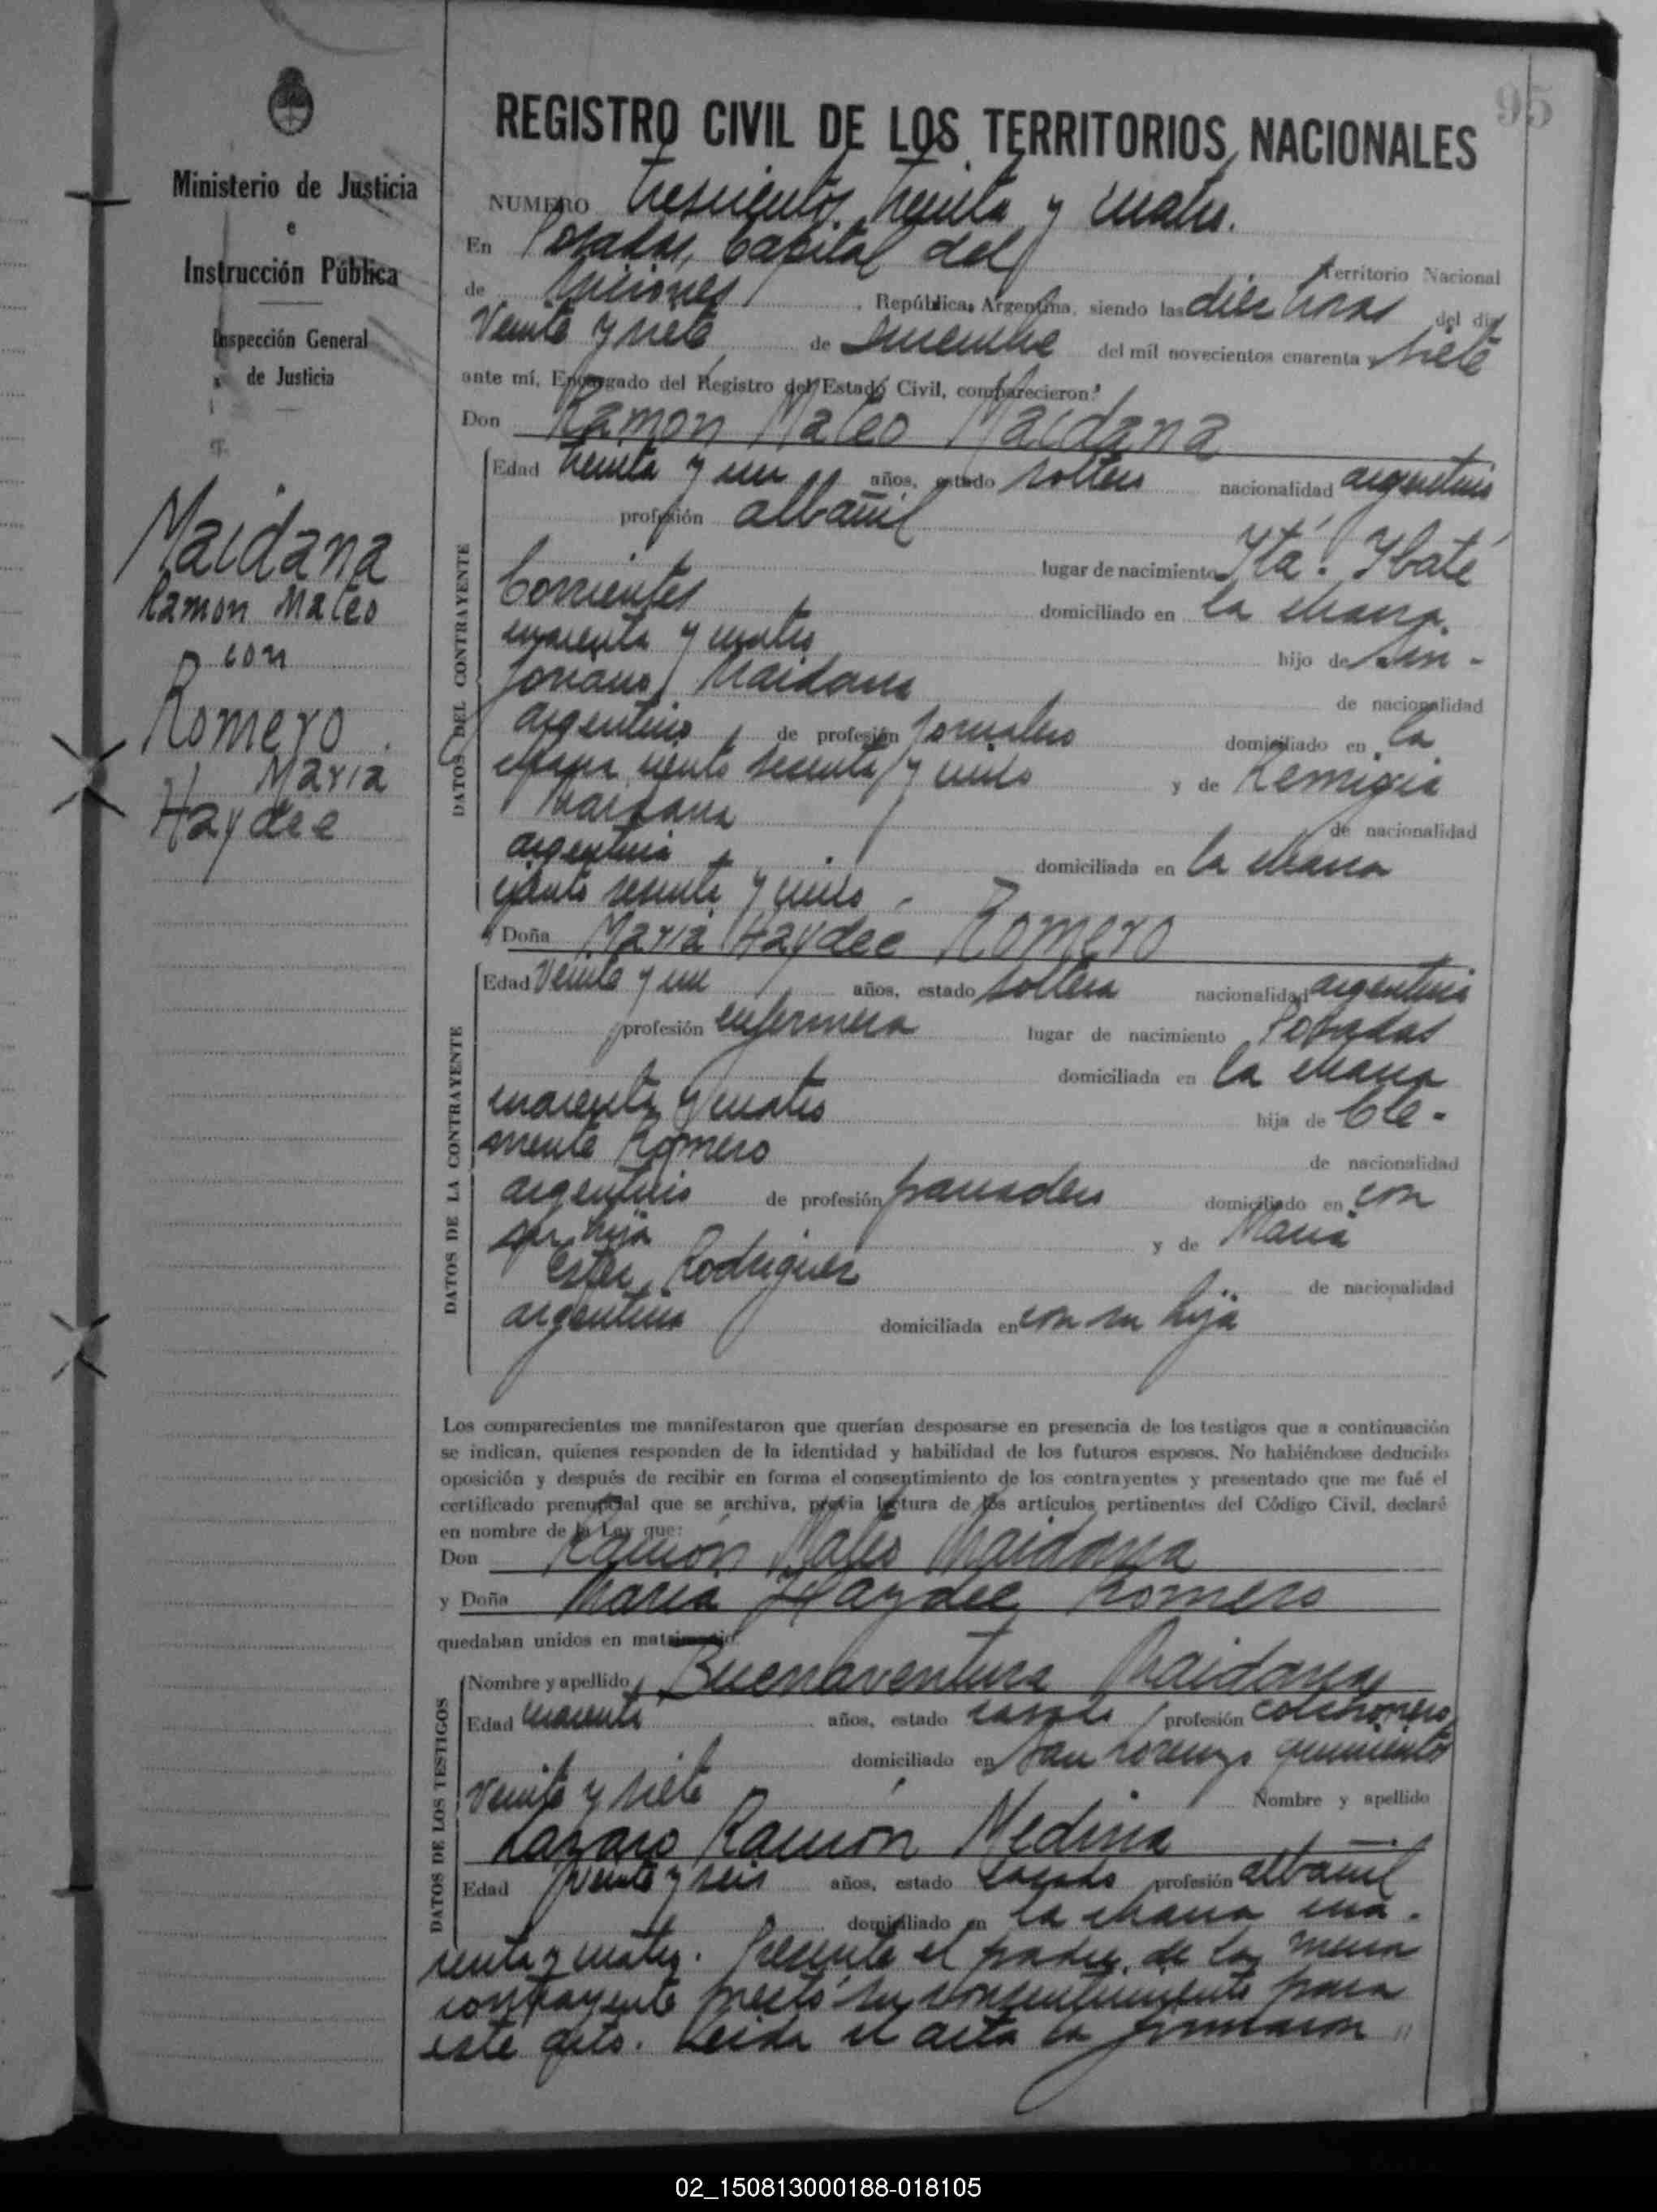 95
Ministerio de Justicia
e
Instrucción Pública
Inspección General
de Justicia
Maidana
Ramon Mateo
con
Romero
Maria
Haydee
REGISTRO CIVIL DE LOS TERRITORIOS NACIONALES
NUMERO trescientos treinta y cuatro.
En Posadas, Capital del Territorio Nacional
de Misiones, República Argentina, siendo las diez horas del día
veinte y siete de diciembre del mil novecientos cuarenta y siete
ante mí, Encargado del Registro del Estado Civil, comparecieron:
Don Ramón Mateo Maidana
DATOS DEL CONTRAYENTE
Edad treinta y un años, estado soltero nacionalidad argentino
profesión albañil
lugar de nacimiento Itá Ybaté
Corrientes domiciliado en la chacra
cuarenta y cuatro hijo de
Maidana de nacionalidad
argentino, de profesión jornalero domiciliado en la
chacra ciento sesenta y uno y de Remigia
Maidana de nacionalidad
argentina, domiciliada en la chacra
ciento sesenta y uno
Doña María Haydee Romero
DATOS DE LA CONTRAYENTE
Edad veinte y un años, estado soltera nacionalidad argentina
profesión enfermera lugar de nacimiento Posadas
domiciliada en la chacra
cuarenta y cuatro hija de Cle-
mente Romero de nacionalidad
argentino de profesión panadero domiciliado en con
su hija y de María
Ester Rodriguez de nacionalidad
argentina domiciliada en con su hija
Los comparecientes me manifestaron que querían desposarse en presencia de los testigos que a continuación
se indican, quienes responden de la identidad y habilidad de los futuros esposos. No habiéndose deducido
oposición y después de recibir en forma el consentimiento de los contrayentes y presentado que me fué el
certificado prenupcial que se archiva, previa lectura de los artículos pertinentes del Código Civil, declaré
en nombre de la Ley que:
Don Ramón Mateo Maidana
y Doña María Haydee Romero
quedaban unidos en matrimonio.
DATOS DE LOS TESTIGOS
Nombre y apellido Buenaventura Maidana
Edad cuarenta años, estado casado, profesión colchonero
domiciliado en San Lorenzo quinientos
veinte y siete Nombre y apellido
Lazaro Ramón Medina
Edad veinte y seis años, estado casado profesión albañil
domiciliado en la chacra cua-
renta y cuatro. Presente el padre de la menor
contrayente prestó su consentimiento para
este acto. Leida el acta la firmaron
02_150813000188-018105